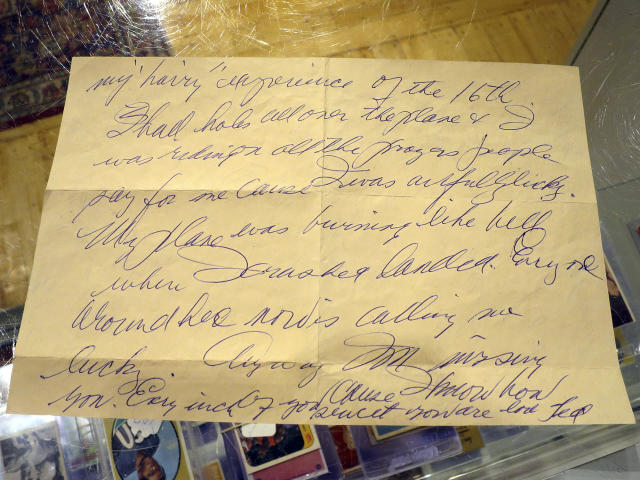 my "hairy" experience of the 16th.
I had holes all over the plane & I
was riding on all the prayers people
say for me cause I was awfully lucky.
My plane was burning like hell
when I crashed landed. Everyone
around here is calling me
lucky. Anyway I'm missing
you. Every inch of you cause I know how
sweet you are and feel